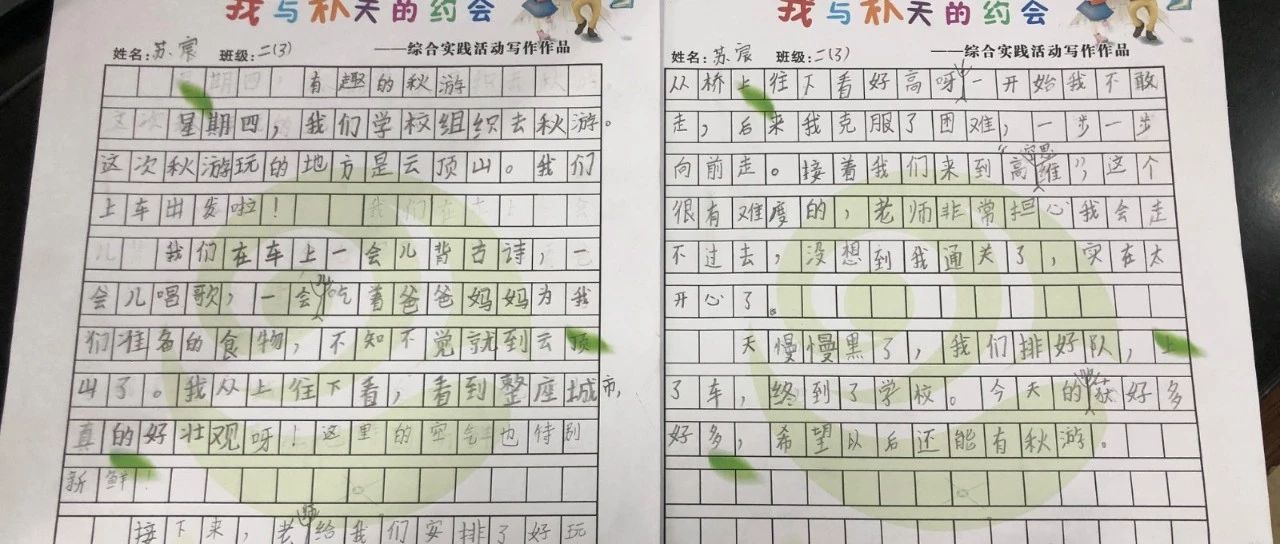 我与秋天的约会
姓名：苏宸 班级：二（3）
——综合实践活动写作作品
有趣的秋游
星期四，我们学校组织去秋游。
这次秋游玩的地方是云顶山。我们
上车出发啦！
我们在车上一会儿背古诗，一
会儿唱歌，一会儿吃着爸爸妈妈为我
们准备的食物，不知不觉就到云顶
山了。我从上往下看，看到整座城市，
真的好壮观呀！这里的空气也特别
新鲜！
接下来，老师给我们安排了好玩
我与秋天的约会
姓名：苏宸 班级：二（3）
——综合实践活动写作作品
从桥上往下看好高呀，一开始我不敢
走，后来我克服了困难，一步一步
向前走。接着我们来到“高难”，这个
很有难度的，老师非常担心我会走
不过去，没想到我通关了，实在太
开心了。
天慢慢黑了，我们排好队，上
了车，终到了学校。今天的收获好多
好多，希望以后还能有秋游。